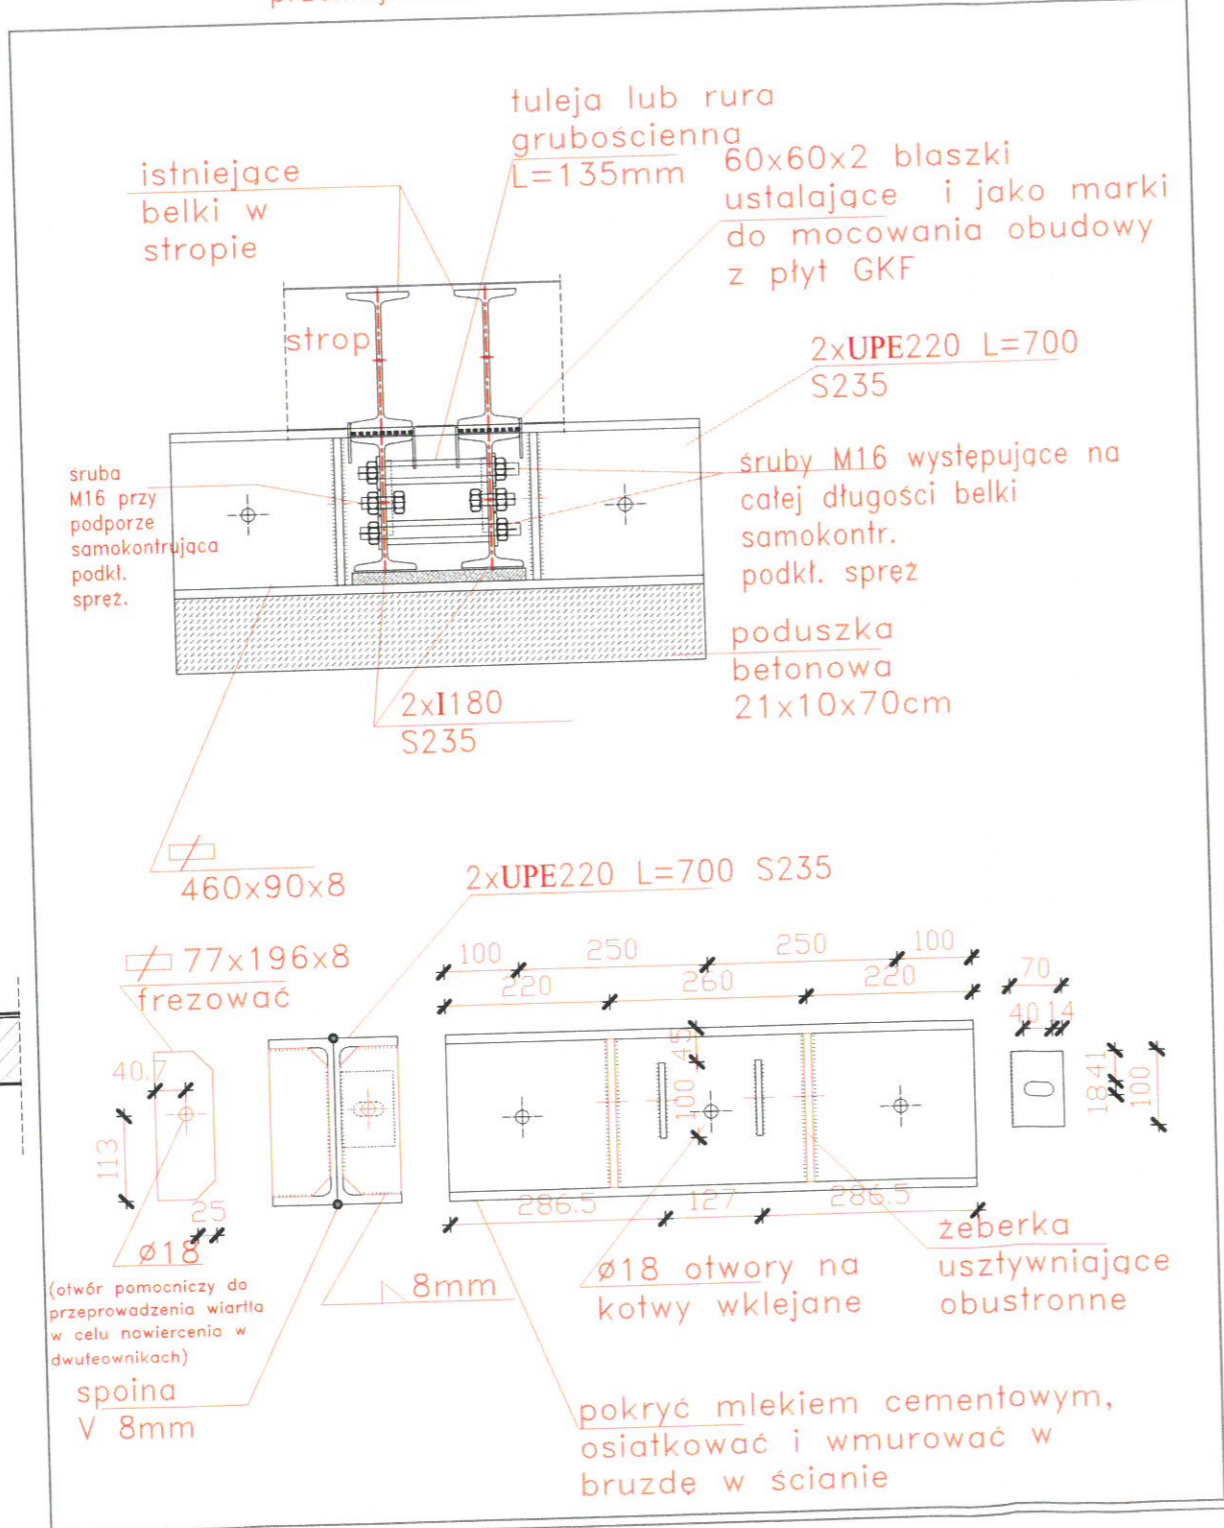 tuleja lub rura
grubościenna
L=135mm
60x60x2 blaszki
ustalające i jako marki
do mocowania obudowy
z płyt GKF
istniejące
belki w
stropie
strop
2xUPE220 L=700
S235
śruba
M16 przy
podporze
samokontrująca
podkł.
spręż.
śruby M16 występujące na
całej długości belki
samokontr.
podkł. spręż
poduszka
betonowa
21x10x70cm
2xI180
S235
460x90x8
2xUPE220 L=700 S235
77x196x8
frezować
100 250 250 100
220 260 220
70
40 14
45
100
40.7
113
25
18 41
100
286.5 127 286.5
ø18
(otwór pomocniczy do
przeprowadzenia wiertła
w celu nawiercenia w
dwuteownikach)
8mm
ø18 otwory na
kotwy wklejane
żeberka
usztywniające
obustronne
spoina
V 8mm
pokryć mlekiem cementowym,
osiatkować i wmurować w
bruzdę w ścianie